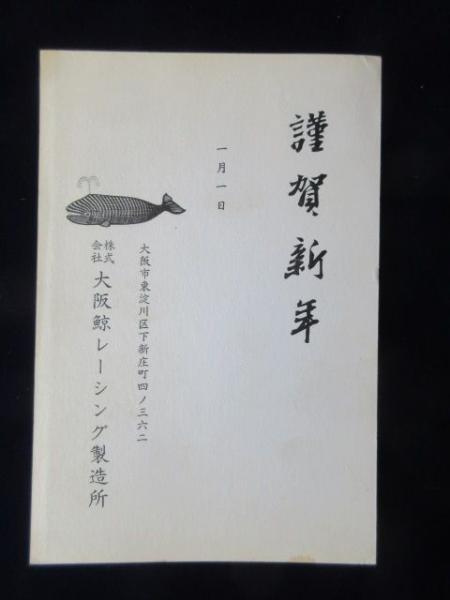 謹賀新年
一月一日
大阪市東淀川区下新庄町四ノ三六二
株式会社 大阪鯨レーシング製造所